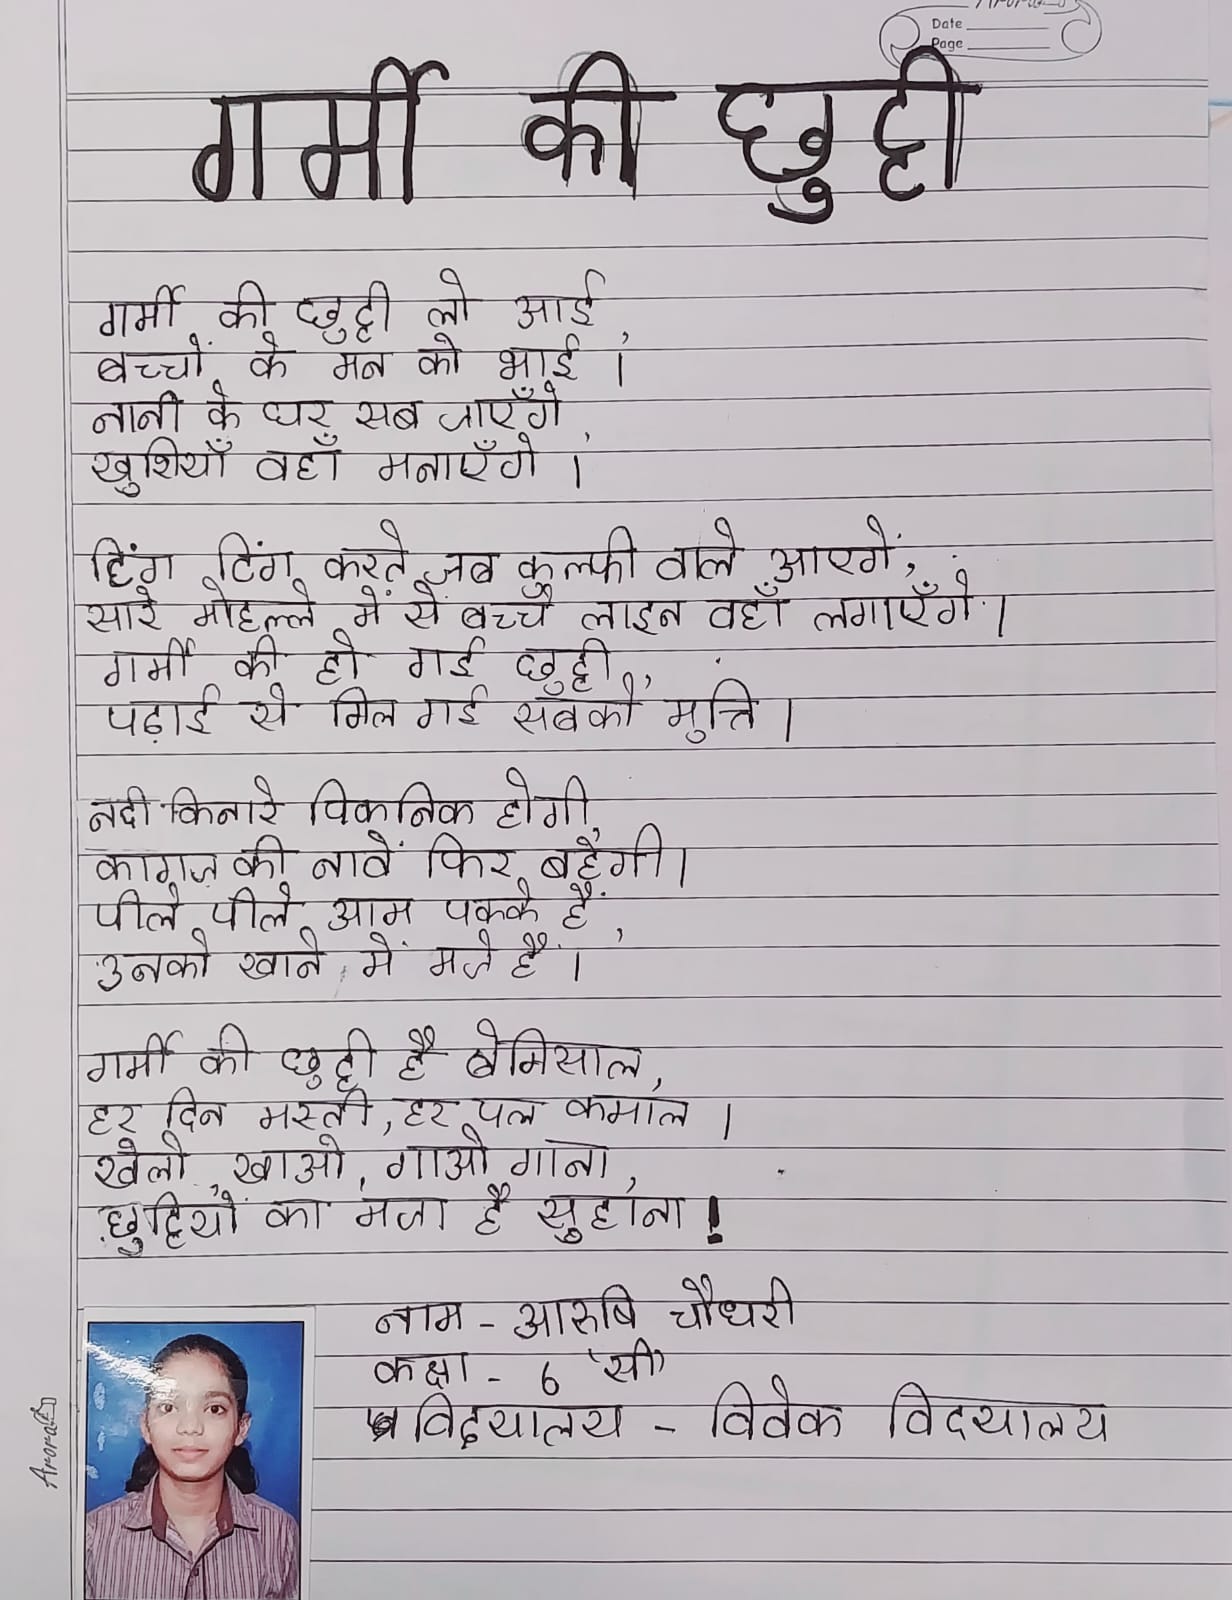 Arora
Date
Page
गर्मी की छुट्टी
गर्मी की छुट्टी लो आई,
बच्चों के मन को भाई।
नानी के घर सब जाएँगे,
खुशियाँ वहाँ मनाएँगे।
टिंग टिंग करते जब कुल्फी वाले आएगें,
सारे मोहल्ले में से बच्चे लाइन वहाँ लगाएँगे।
गर्मी की हो गई छुट्टी,
पढ़ाई से मिल गई सबको मुक्ति।
नदी किनारे पिकनिक होगी,
कागज़ की नावें फिर बहेंगी।
पीले पीले आम पकके हैं,
उनको खाने में मजे हैं।
गर्मी की छुट्टी है बेमिसाल,
हर दिन मस्ती, हर पल कमाल।
खेलो, खाओ, गाओ गाना,
छुट्टियों का मजा है सुहाना!
नाम - आरुषि चौधरी
कक्षा - 6 'सी'
विद्यालय - विवेक विद्यालय
Arora